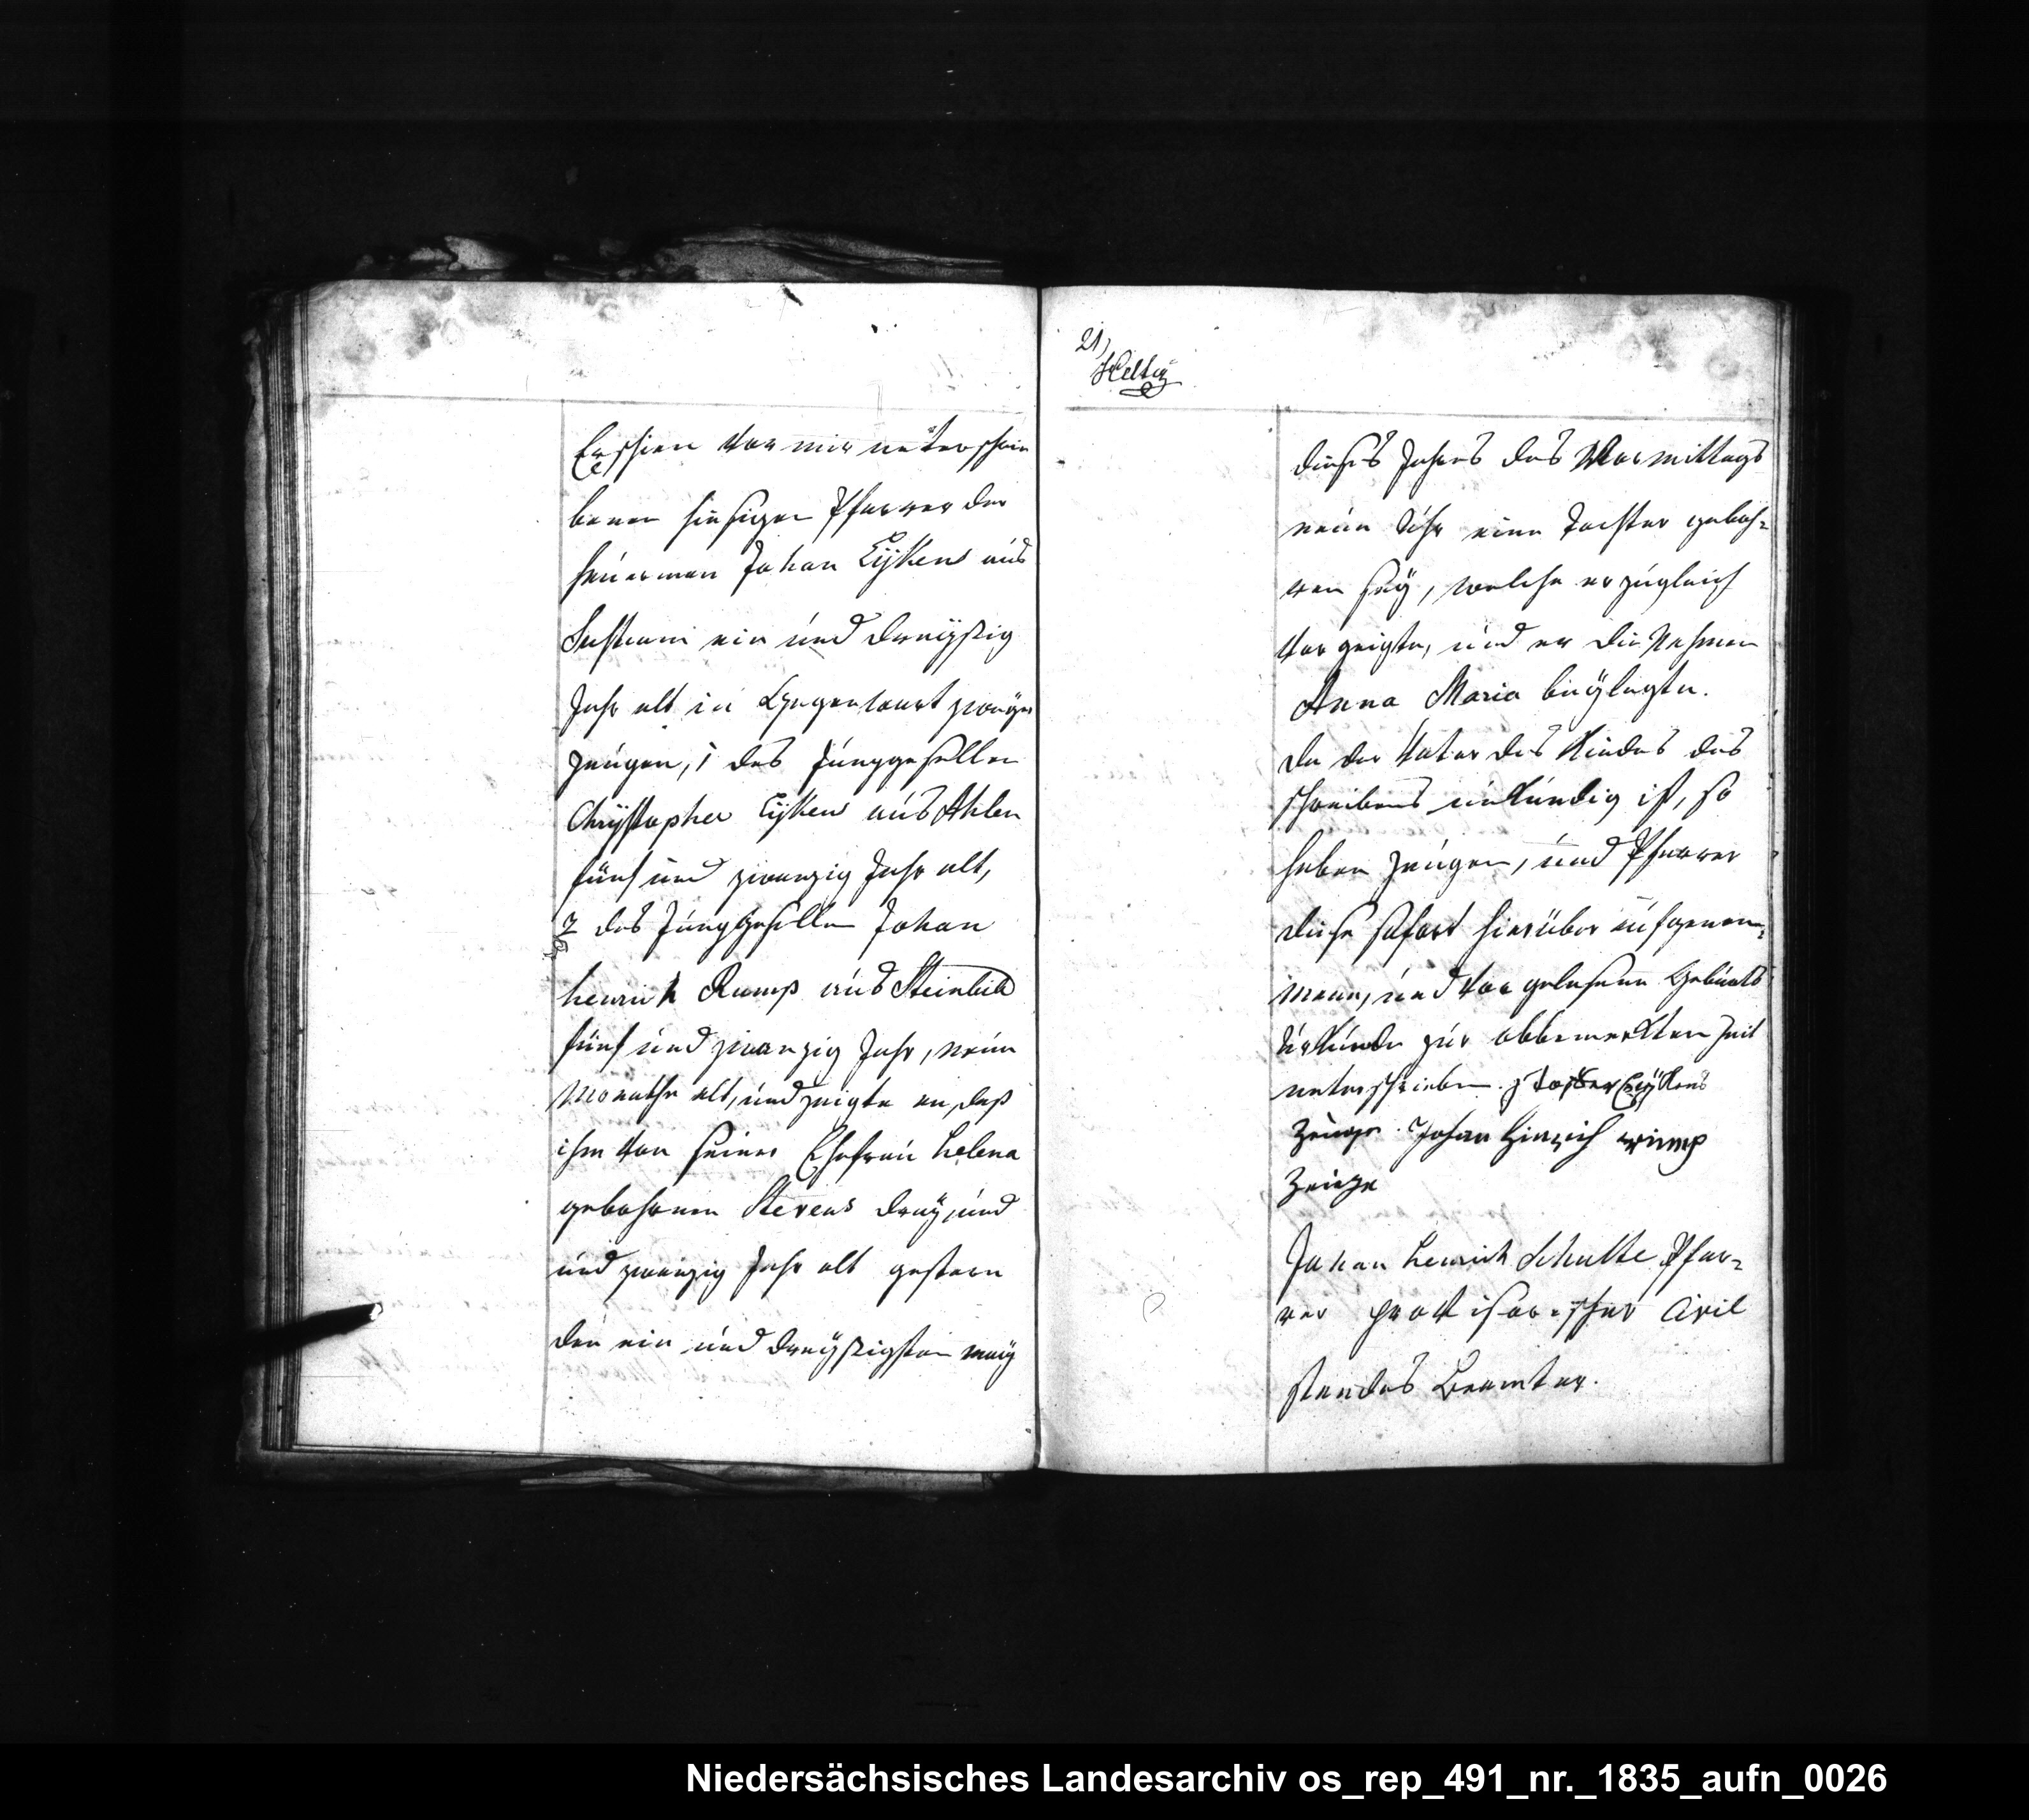 Erschien vor mir unterschrie
benen hiesigen Pfarrer der
heuerman Johan Eijkens aus
Sustrum ein und dreÿßig
Jahr alt in Gegenwart zweÿer
zeugen, 1 des Junggesellen
Chrijstopher Eijkens aus Ahlen
fünf und zwanzig Jahr alt,
2 des Junggesellen Johan
henrich Rump aus Steinbild
fünf und zwanzig Jahr, neun
Monathe alt, und zeigte an, daß
ihm von seiner Ehefrau helena
gebohrnen Stevens dreÿ und
und zwanzig Jahr alt gestern
den ein und dreÿßigsten meÿ
21,
dieses Jahres des Vormittags
neun Uhr eine Tochter geboh-
ren seÿ, welche er zugleich
vorzeigte, und er die Nahmen
Anna Maria beÿlegte.
da der Vater des Kindes des
schreibens unkündig ist, so
haben zeugen, und Pfarrer
diese sofort hierüber aufgenom-
mene, und vorgelesene Geburts
Urkunde zur obbemerkten zeit
unterschrieben. Eijkens
Zeuge. Johan Hinrich rump
Zeuge
Johan henrich Schulte Pfar-
rer provisorischer Civil
standes Beamter.
Niedersächsisches Landesarchiv os_rep_491_nr._1835_aufn_0026